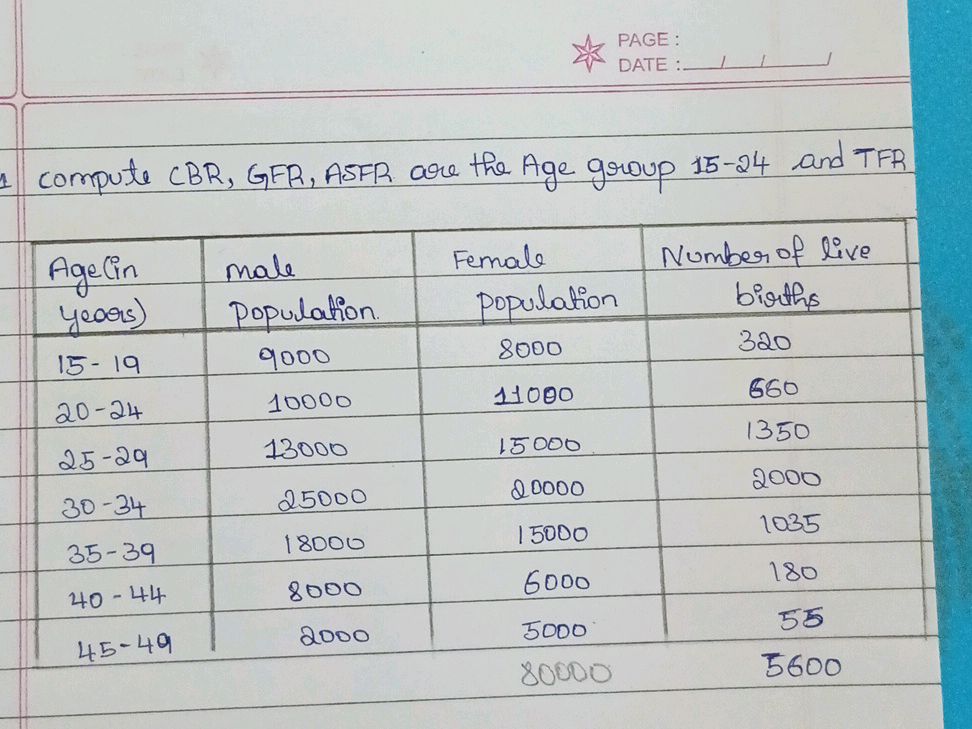 PAGE :
DATE : / / /
1 compute CBR, GFR, ASFR are the Age group 15-24 and TFR
Age (in years) male population. Female population Number of live births
15-19 9000 8000 320
20-24 10000 11000 660
25-29 13000 15000 1350
30-34 25000 20000 2000
35-39 18000 15000 1035
40-44 8000 6000 180
45-49 2000 5000 55
80000 5600